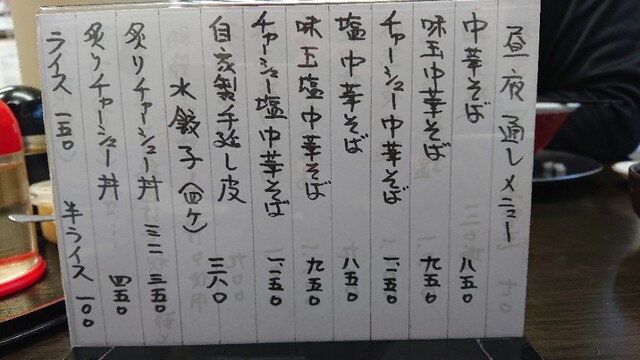 昼夜通しメニュー
中華そば 八五〇
味玉中華そば 九五〇
チャーシュー中華そば 一、二五〇
塩中華そば 八五〇
味玉塩中華そば 九五〇
チャーシュー塩中華そば 一、二五〇
自家製手延し皮
水餃子(四ケ) 三八〇
炙りチャーシュー丼 ミニ 三五〇
炙りチャーシュー丼 四五〇
ライス 一五〇 半ライス 一〇〇